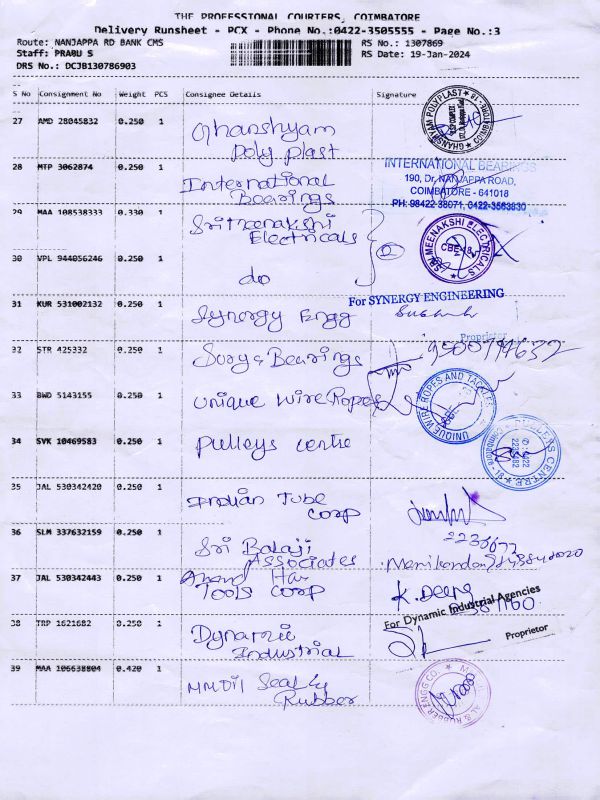 THE PROFESSIONAL COURIERS, COIMBATORE
Delivery Runsheet - PCX - Phone No.:0422-3505555 - Page No.:3
Route: NANJAPPA RD BANK CMS RS No.: 1307869
Staff: PRABU S RS Date: 19-Jan-2024
DRS No.: DCJB130786903
S No Consignment No Weight PCS Consignee Details Signature
27 AMD 28045832 0.250 1 Ghanshyam
Poly plast
GHANSHYAM POLYPLAST
28 MTP 3062874 0.250 1 International
Bearings
INTERNATIONAL BEARINGS
190, Dr. NANJAPPA ROAD,
COIMBATORE - 641018
PH: 98422 38071, 0422-3563830
29 MAA 108538333 0.330 1 Sri Meenakshi
Electricals
SRI MEENAKSHI ELECTRICALS
CBE-18
30 VPL 944056246 0.250 1 do
31 KUR 531002132 0.250 1 Synergy Engg
For SYNERGY ENGINEERING
Proprietor
32 STR 425332 0.250 1 Surya Bearings
33 BWD 5143155 0.250 1 Unique Wire Ropes
UNIQUE WIRE ROPES AND TACKLES
34 SVK 10469583 0.250 1 Pulleys centre
PULLEYS CENTRE
35 JAL 530342420 0.250 1 Indian Tube
Corp
36 SLM 337632159 0.250 1 Sri Balaji
Associates
37 JAL 530342443 0.250 1 Anand Hari
Tools Corp
K. Deepa
38 TRP 1621682 0.250 1 Dynamic
Industrial
For Dynamic Industrial Agencies
Proprietor
39 MAA 106638804 0.420 1 MMOil Seal by
Rubber